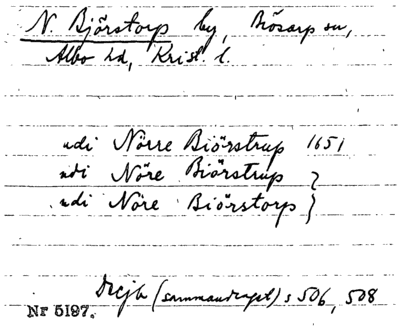 N. Bjärstorp by, Brösarp sn,
Albo hd, Krist. l.
udi Nörre Biörstrup 1651
udi Nöre Biörstrup }
udi Nöre Biörstorp }
Drcjb (sammandraget) s 506, 508
Nr 5197.